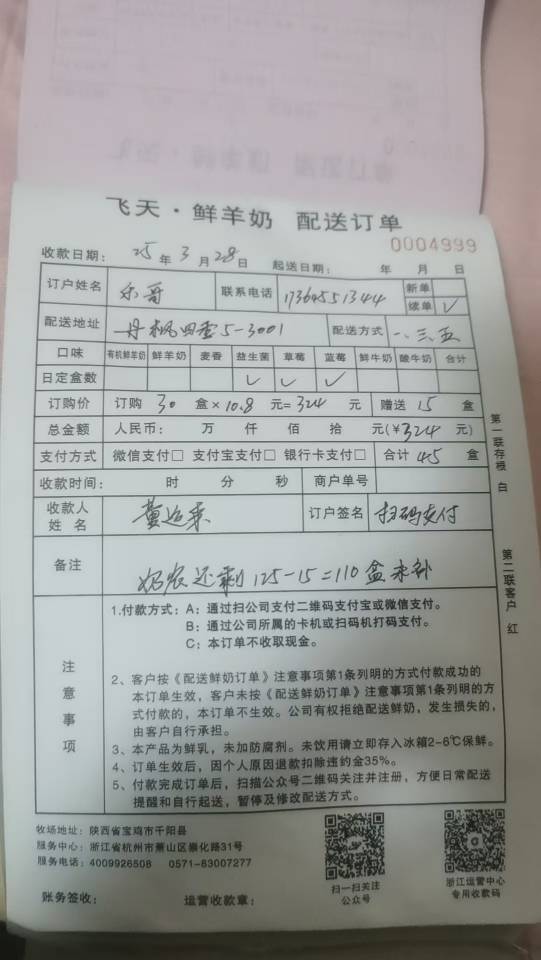 飞天·鲜羊奶 配送订单
0004999
收款日期: 25 年 3 月 28 日 起送日期: 年 月 日
订户姓名 乐哥 联系电话 17364551344 新单
续单 ✓
配送地址 丹枫四季5-3001 配送方式 一、三、五
口味 有机鲜羊奶 鲜羊奶 麦香 益生菌 草莓 蓝莓 鲜牛奶 酸牛奶 合计
日定盒数 ✓ ✓ ✓
订购价 订购 30 盒×10.8 元=324 元 赠送 15 盒
总金额 人民币: 万 仟 佰 拾 元(¥324 元)
支付方式 微信支付□ 支付宝支付□ 银行卡支付□ 合计 45 盒
收款时间: 时 分 秒 商户单号
收款人姓名 订户签名 扫码支付
备注 奶农还剩125-15=110盒未补
注意事项
1.付款方式: A: 通过扫公司支付二维码支付宝或微信支付。
B: 通过公司所属的卡机或扫码机打码支付。
C: 本订单不收取现金。
2、客户按《配送鲜奶订单》注意事项第1条列明的方式付款成功的
本订单生效，客户未按《配送鲜奶订单》注意事项第1条列明的方
式付款的，本订单不生效。公司有权拒绝配送鲜奶，发生损失的，
由客户自行承担。
3、本产品为鲜乳，未加防腐剂。未饮用请立即存入冰箱2-6℃保鲜。
4、订单生效后，因个人原因退款扣除违约金35%。
5、付款完成订单后，扫描公众号二维码关注并注册，方便日常配送
提醒和自行起送，暂停及修改配送方式。
第一联存根 白
第二联客户 红
牧场地址: 陕西省宝鸡市千阳县
服务中心: 浙江省杭州市萧山区崇化路31号
服务电话: 4009926508 0571-83007277
账务签收: 运营收款章:
扫一扫关注
公众号
浙江运营中心
专用收款码